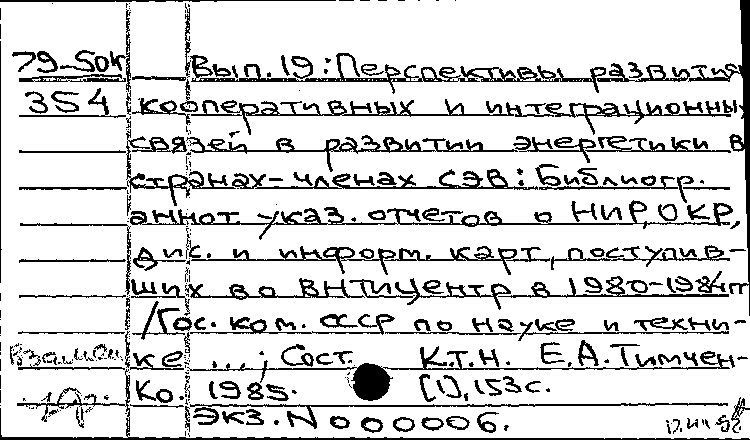 79-50к Вып. 19: Перспективы развития
354 кооперативных и интеграционных
связей в развитии энергетики в
странах-членах СЭВ: Библиогр.
аннот. указ. отчетов о НИР, ОКР,
дис. и информ. карт, поступив-
ших во ВНТИЦентр в 1980-1984 гг
/Гос. ком. СССР по науке и техни-
Взамен ке ...; Сост. к.т.н. Е.А. Тимчен-
ко. 1985. [1], 153 с.
Экз. N 000006.